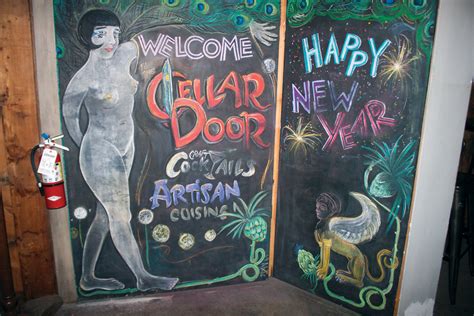 WELCOME
CELLAR
DOOR
CRAFT
COCKTAILS
ARTISAN
CUISINE
HAPPY
NEW
YEAR